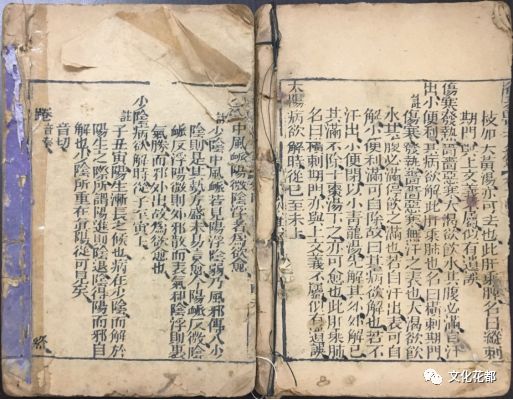 枝加大黃湯亦可去也此肝乘脾名曰縱刺
期門上文義不屬似有遺誤
傷寒發熱嗇嗇惡寒大渴欲飲水其腹必滿自汗
出小便利其病欲解此肝乘肺也名曰橫刺期門
註傷寒發熱嗇嗇惡寒無汗之表也大渴欲飲
水其腹必滿停飲之滿也若自汗出表可自
解小便利滿可自除故曰其病欲解也若不
汗出小便閉以小青龍湯先解其外外解已
其滿不除十棗湯下之亦可愈也此肝乘肺
名曰橫刺期門亦與上文義不屬似有遺誤
太陽病欲解時從巳至未上
中風脈陽微陰浮者為欲愈
註少陰中風脈若見陽浮陰弱乃風邪傳入少
陰則是其勢方盛未易言愈今陽脈反微陰
脈反浮陽微則外邪散而表氣和陰浮則裏
氣勝而邪外出故為欲愈也
少陰病欲解時從子至寅上
註子丑寅陽生漸長之候也病在少陰而解於
陽生之際所謂陽進則陰退陰得陽而邪自
解也少陰所重在眞陽從可見矣
音切
文化花都